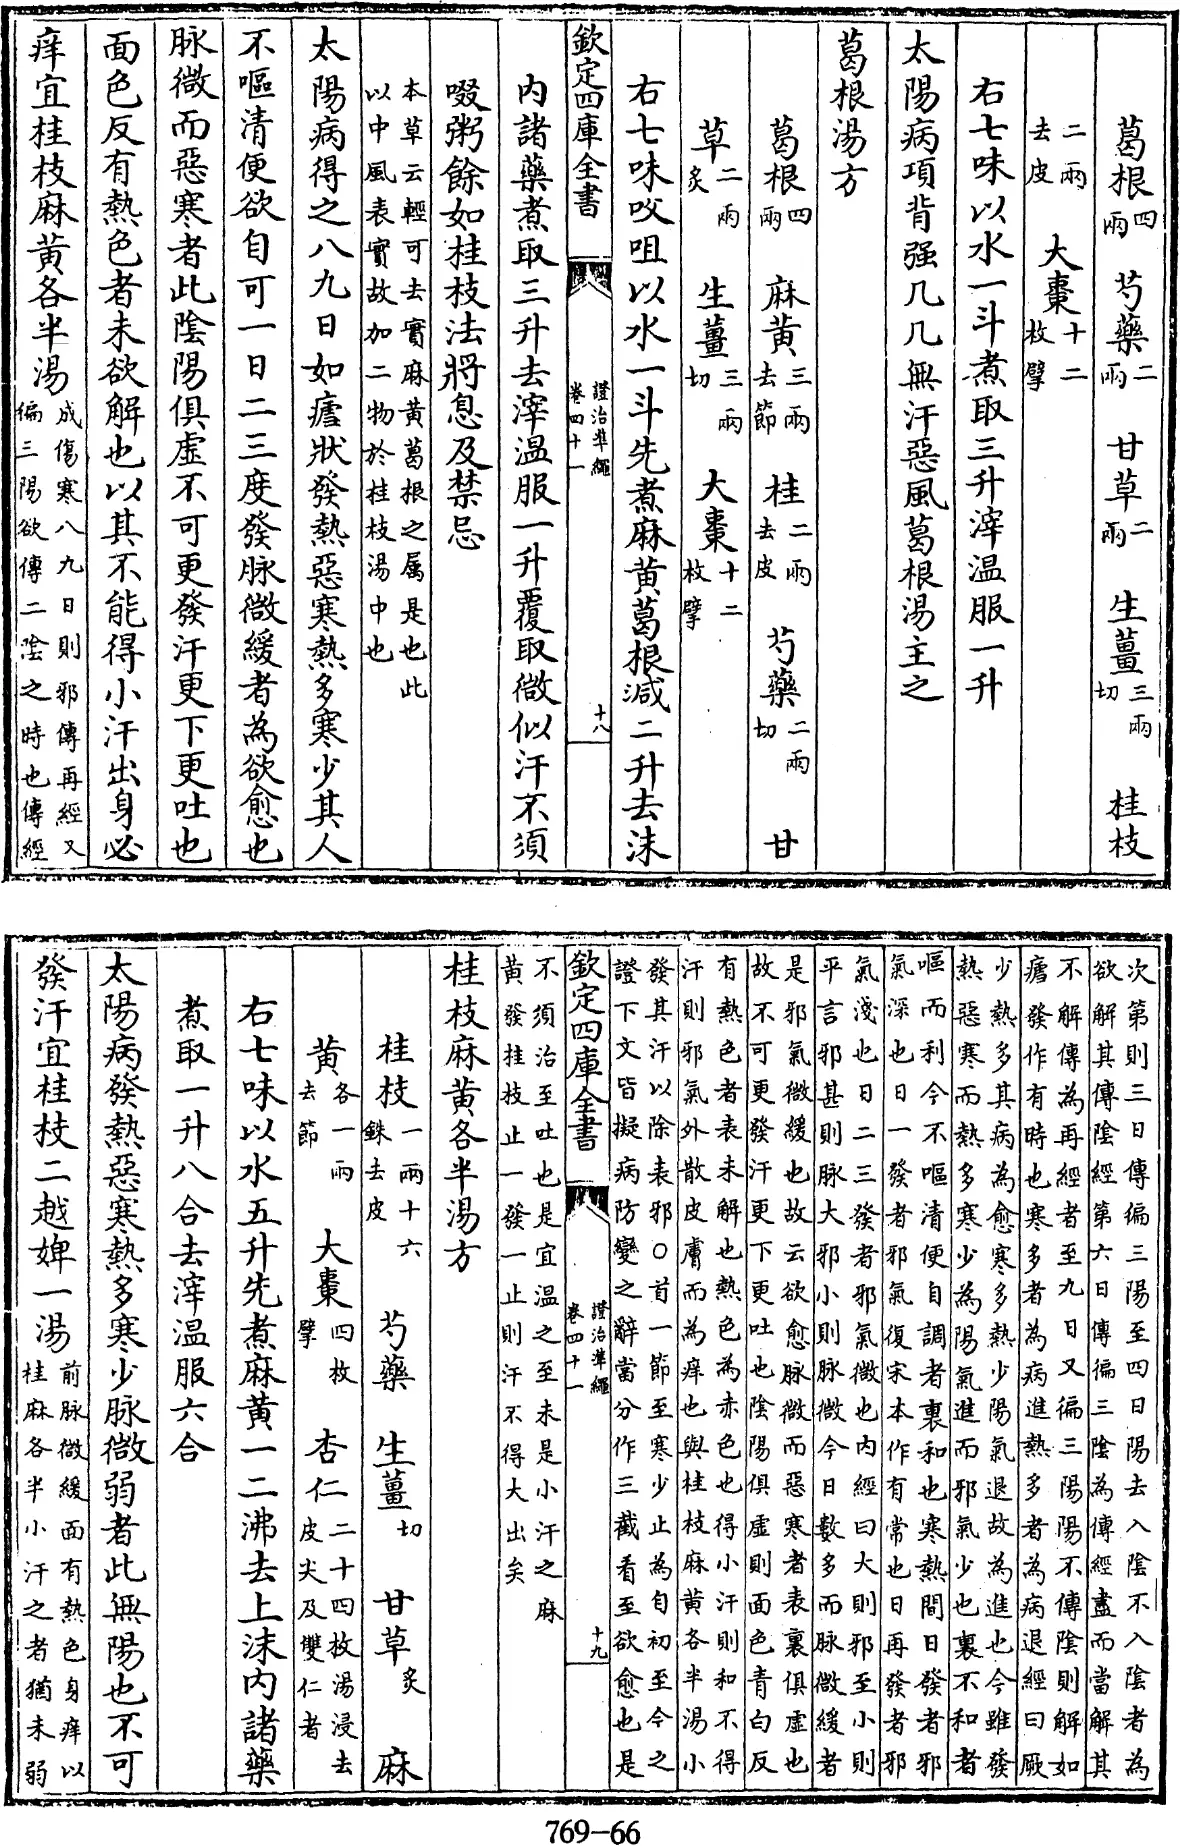 葛根四兩 芍藥二兩 甘草二兩 生薑三兩切 桂枝
二兩去皮 大棗十二枚擘
右七味以水一斗煮取三升滓温服一升
太陽病項背强几几無汗惡風葛根湯主之
葛根湯方
葛根四兩 麻黄三兩去節 桂二兩去皮 芍藥二兩切 甘
草二兩炙 生薑三兩切 大棗十二枚擘
右七味㕮咀以水一斗先煮麻黄葛根減二升去沫
欽定四庫全書 證治準繩 卷四十一 十八
内諸藥煮取三升去滓温服一升覆取微似汗不須
啜粥餘如桂枝法將息及禁忌
本草云輕可去實麻黄葛根之属是也此
以中風表實故加二物於桂枝湯中也
太陽病得之八九日如瘧狀發熱惡寒熱多寒少其人
不嘔清便欲自可一日二三度發脉微緩者為欲愈也
脉微而惡寒者此陰陽俱虛不可更發汗更下更吐也
面色反有熱色者未欲解也以其不能得小汗出身必
痒宜桂枝麻黄各半湯
成傷寒八九日則邪傳再經又
徧三陽欲傳二陰之時也傳經
次第則三日傳徧三陽至四日陽去入陰不入陰者為
欲解其傳陰經第六日傳徧三陰為傳經盡而當解其
不解傳為再經者至九日又徧三陽陽不傳陰則解如
瘧發作有時也寒多者為病進熱多者為病退經曰厥
少熱多其病為愈寒多熱少陽氣退故為進也今雖發
熱惡寒而熱多寒少為陽氣進而邪氣少也裏不和者
嘔而利今不嘔清便自調者裏和也寒熱間日發者邪
氣深也日一發者邪氣復宋本作有常也日再發者邪
氣淺也日二三發者邪氣微也内經曰大則邪至小則
平言邪甚則脉大邪小則脉微今日數多而脉微緩者
是邪氣微緩也故云欲愈脉微而惡寒者表裏俱虛也
故不可更發汗更下更吐也陰陽俱虛則面色青白反
有熱色者表未解也熱色為赤色也得小汗則和不得
汗則邪氣外散皮膚而為痒也與桂枝麻黄各半湯小
發其汗以除表邪○首一節至寒少止為自初至今之
證下文皆擬病防變之辭當分作三截看至欲愈也是
欽定四庫全書 證治準繩 卷四十一 十九
不須治至吐也是宜温之至未是小汗之麻
黄發桂枝止一發一止則汗不得大出矣
桂枝麻黄各半湯方
桂枝一兩十六銖去皮 芍藥 生薑切 甘草炙 麻
黄各一兩去節 大棗四枚擘 杏仁二十四枚湯浸去皮尖及雙仁者
右七味以水五升先煮麻黄一二沸去上沫内諸藥
煮取一升八合去滓温服六合
太陽病發熱惡寒熱多寒少脉微弱者此無陽也不可
發汗宜桂枝二越婢一湯
前脉微緩面有熱色身痒以
桂麻各半小汗之者猶未弱
769-66